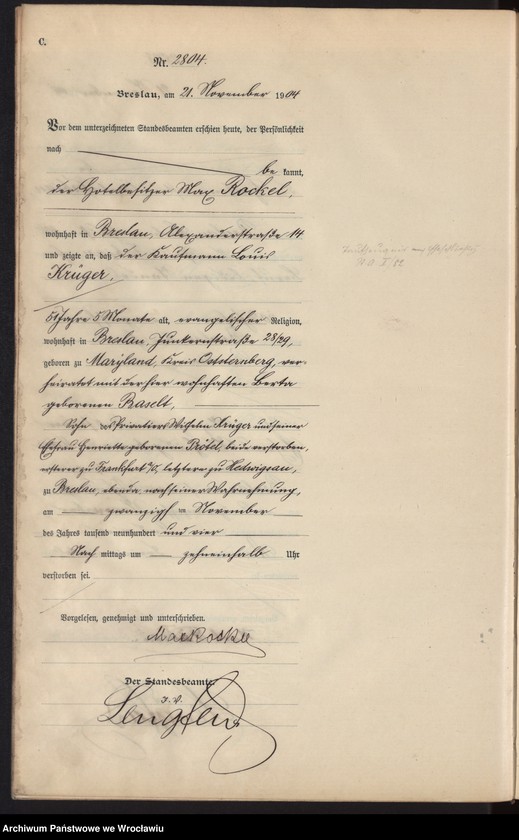 C.
Nr. 2804.
Breslau, am 21. November 1904
Vor dem unterzeichneten Standesbeamten erschien heute, der Persönlichkeit
nach
be kannt,
der Hotelbesitzer Max Rockel,
wohnhaft in Breslau, Alexanderstraße 14
und zeigte an, daß der Kaufmann Louis
Krüger,
51 Jahre 5 Monate alt, evangelischer Religion,
wohnhaft in Breslau, Junkernstraße 28/29,
geboren zu Maryland, Kreis Oststernberg, ver-
heiratet mit der hier wohnhaften Berta
geborenen Raselt,
Sohn des Privatiers Wilhelm Krüger und seiner
Ehefrau Henriette geborenen Prötel, beide verstorben,
ersterer zu Frankfurt a/O, letztere zu Hedwigsau,
zu Breslau, ebenda, nach seiner Wahrnehmung,
am zwanzigsten November
des Jahres tausend neunhundert und vier
Nach mittags um zehneinhalb Uhr
verstorben sei.
Vorgelesen, genehmigt und unterschrieben.
Max Rockel
Der Standesbeamte.
J. V.
Archiwum Państwowe we Wrocławiu